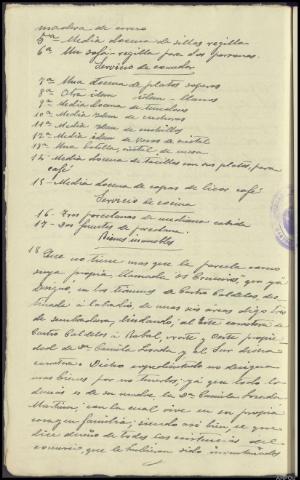 madera de
5ª Media docena de sillas regilla
6ª Un sofá regilla para dos personas.
Servicio de comedor
7ª Una docena de platos soperos
8ª Otra idem idem llanos
9ª Media docena de tenedores
10ª Media idem de cucharas
11ª Media idem de cuchillos
12ª Media idem de vasos de cristal
13ª Una botella, cristal, de mesa
14 Media docena de tacillas con sus platos, para
café
15 - Media docena de copas de licor café
Servicio de cocina
16 - Tres porcelanas de mediana cabida
17 - Dos fuentes de porcelana.
Bienes inmuebles
18 Que no tiene mas que la parcela como
suya propia llamada "Os que ya
en los términos de Castro Caldelas, des-
tinada á labradío, de unas seis areas digo tres
de sembradura, lindando; al Este carretera de
Castro Caldelas á Rabal, norte y Oeste propie-
dad de Dª Camila Losada y al Sur dicha
carretera. Dicho expedientado no designa
mas bienes por no tenerlos; ya que todo lo
demás es de su madre la Dª Camila Losada
con la cual vive en su propia
casa en familia; siendo así bien, se que
dice dueña de todas las existencias del
comercio, que le hubieran sido inventariados